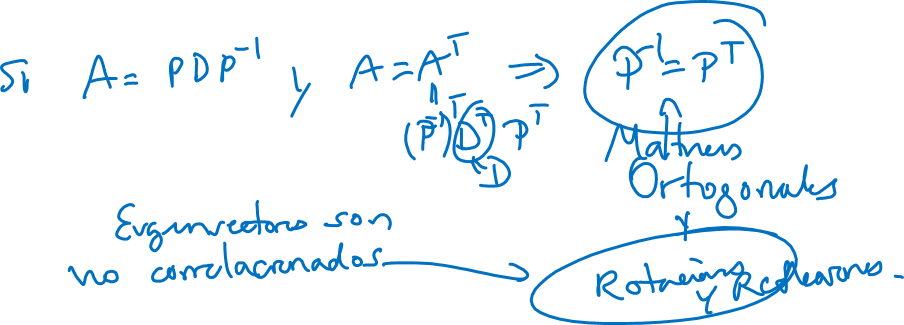 Si A = PDP⁻¹ y A = Aᵀ ⇒ P⁻¹ = Pᵀ
(P⁻¹)ᵀ Dᵀ Pᵀ
D
Matrices
Ortogonales
Eigenvectores son
no correlacionados
Rotaciones
y Reflexiones.